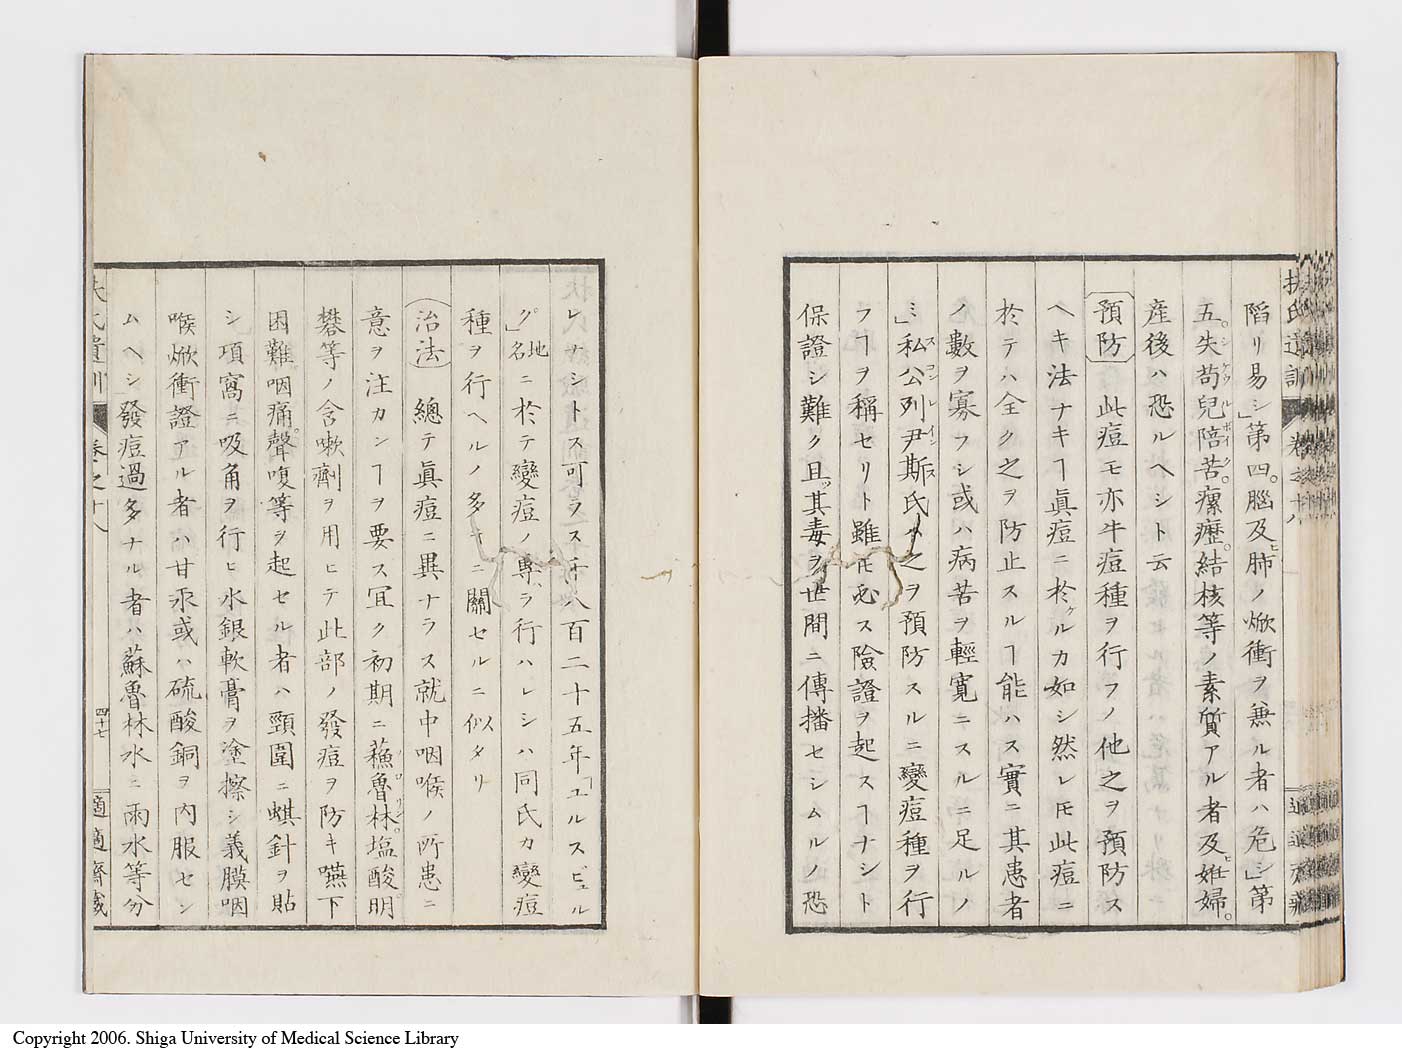 陷リ易シ」第四。腦及ヒ肺ノ焮衝ヲ兼ル者ハ危シ」第
五。失苟兒陪苦。瘰癧。結核等ノ素質アル者及ヒ妊婦。
産後ハ恐ルヘシト云
預防 此痘モ亦牛痘種ヲ行フノ他之ヲ預防ス
ヘキ法ナキヿ眞痘ニ於ケルカ如シ然レ𪜈此痘ニ
於テハ全ク之ヲ防止スルヿ能ハス實ニ其患者
ノ數ヲ寡フシ或ハ病苦ヲ輕寛ニスルニ足ルノ
ミ」私公列尹斯氏ハ之ヲ預防スルニ變痘種ヲ行
フヿヲ稱セリト雖𪜈必ス險證ヲ起スヿナシト
保證シ難ク且ツ其毒ヲ世間ニ傳播セシムルノ恐
レナシトス可ラス千八百二十五年「ユルスビュル
グ」地名ニ於テ變痘ノ專ラ行ハレシハ同氏カ變痘
種ヲ行ヘルノ多キニ關セルニ似タリ
治法 總テ眞痘ニ異ナラス就中咽喉ノ所患ニ
意ヲ注カンヿヲ要ス宜ク初期ニ蘓魯林。塩酸明
礬等ノ含嗽劑ヲ用ヒテ此部ノ發痘ヲ防キ嚥下
困難咽痛。聲嗄等ヲ起セル者ハ頸圍ニ蜞針ヲ貼
シ項窩ニ吸角ヲ行ヒ水銀軟膏ヲ塗擦シ義膜咽
喉焮衝證アル者ハ甘汞或ハ硫酸銅ヲ内服セシ
ムヘシ」發痘過多ナル者ハ蘇魯林水ニ雨水等分
扶氏遺訓 卷之十八 四十七 適適齋藏